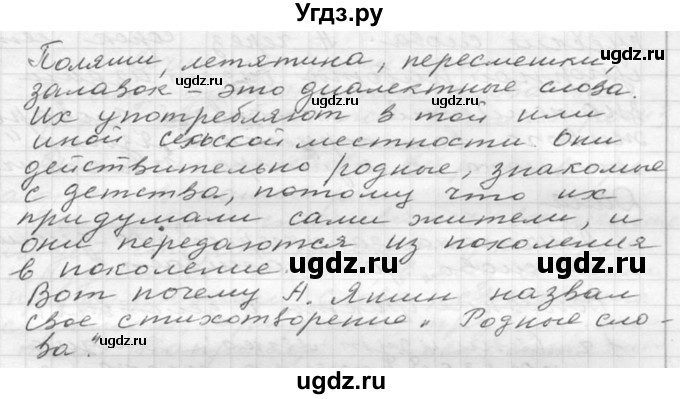 Угдз.ру
Поляши, летятина, пересмешки,
залавок – это диалектные слова.
Их употребляют в той или
иной сельской местности. Они
действительно родные, знакомые
с детства, потому что их
придумали сами жители, и
они передаются из поколения
в поколение.
Вот почему Н. Яшин назвал
свое стихотворение „Родные сло-
ва."
ugdz.ru
ugdz.ru
ugdz.ru
ugdz.ru
ugdz.ru
ugdz.ru
ugdz.ru
ugdz.ru
ugdz.ru